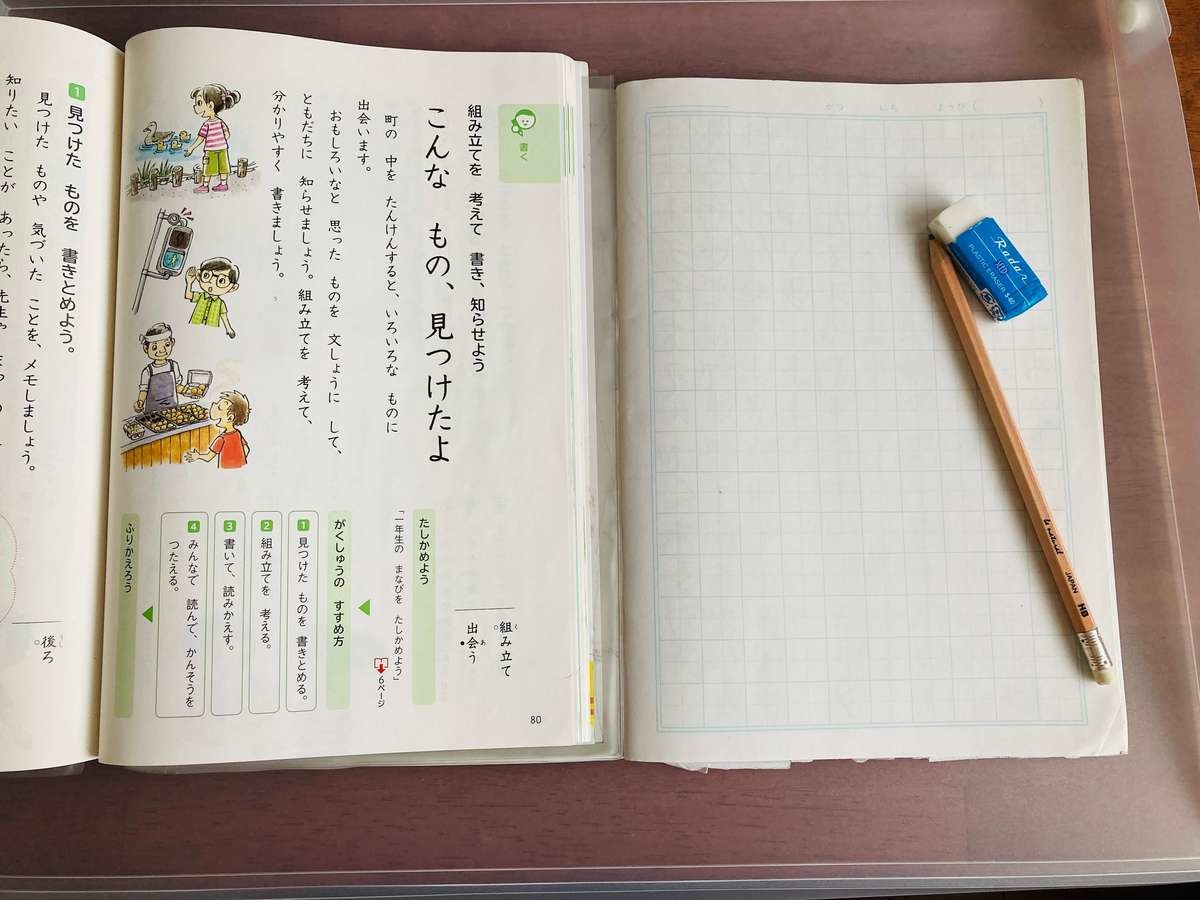 書く
組み立てを 考えて 書き、知らせよう
こんな もの、見つけたよ
町の 中を たんけんすると、いろいろな ものに
出会います。
おもしろいなと 思った ものを 文しょうに して、
ともだちに 知らせましょう。組み立てを 考えて、
分かりやすく 書きましょう。
組み立て
く
出会う
あ
たしかめよう
「一年生の まなびを たしかめよう」
6ページ
がくしゅうの すすめ方
1 見つけた ものを 書きとめる。
2 組み立てを 考える。
3 書いて、読みかえす。
4 みんなで 読んで、かんそうを
つたえる。
ふりかえろう
80
1 見つけた ものを 書きとめよう。
見つけた ものや 気づいた ことを、メモしましょう。
知りたい ことが あったら、先生や
後ろ
うし
がつ にち ようび( )
Radar
PLASTIC ERASER S-60
JAPAN HB